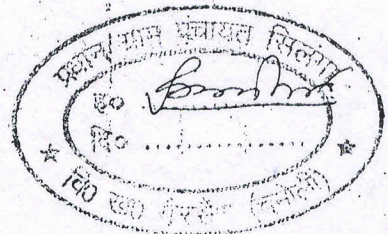 प्रधान ग्राम पंचायत सिलंगा
ह०
दि० ..................
वि० ख० गैरसैंण (चमोली)